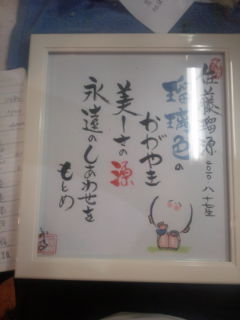 佐藤瑠源
瑠璃色の
かがやき
美しさの源
永遠のしあわせを
もとめ